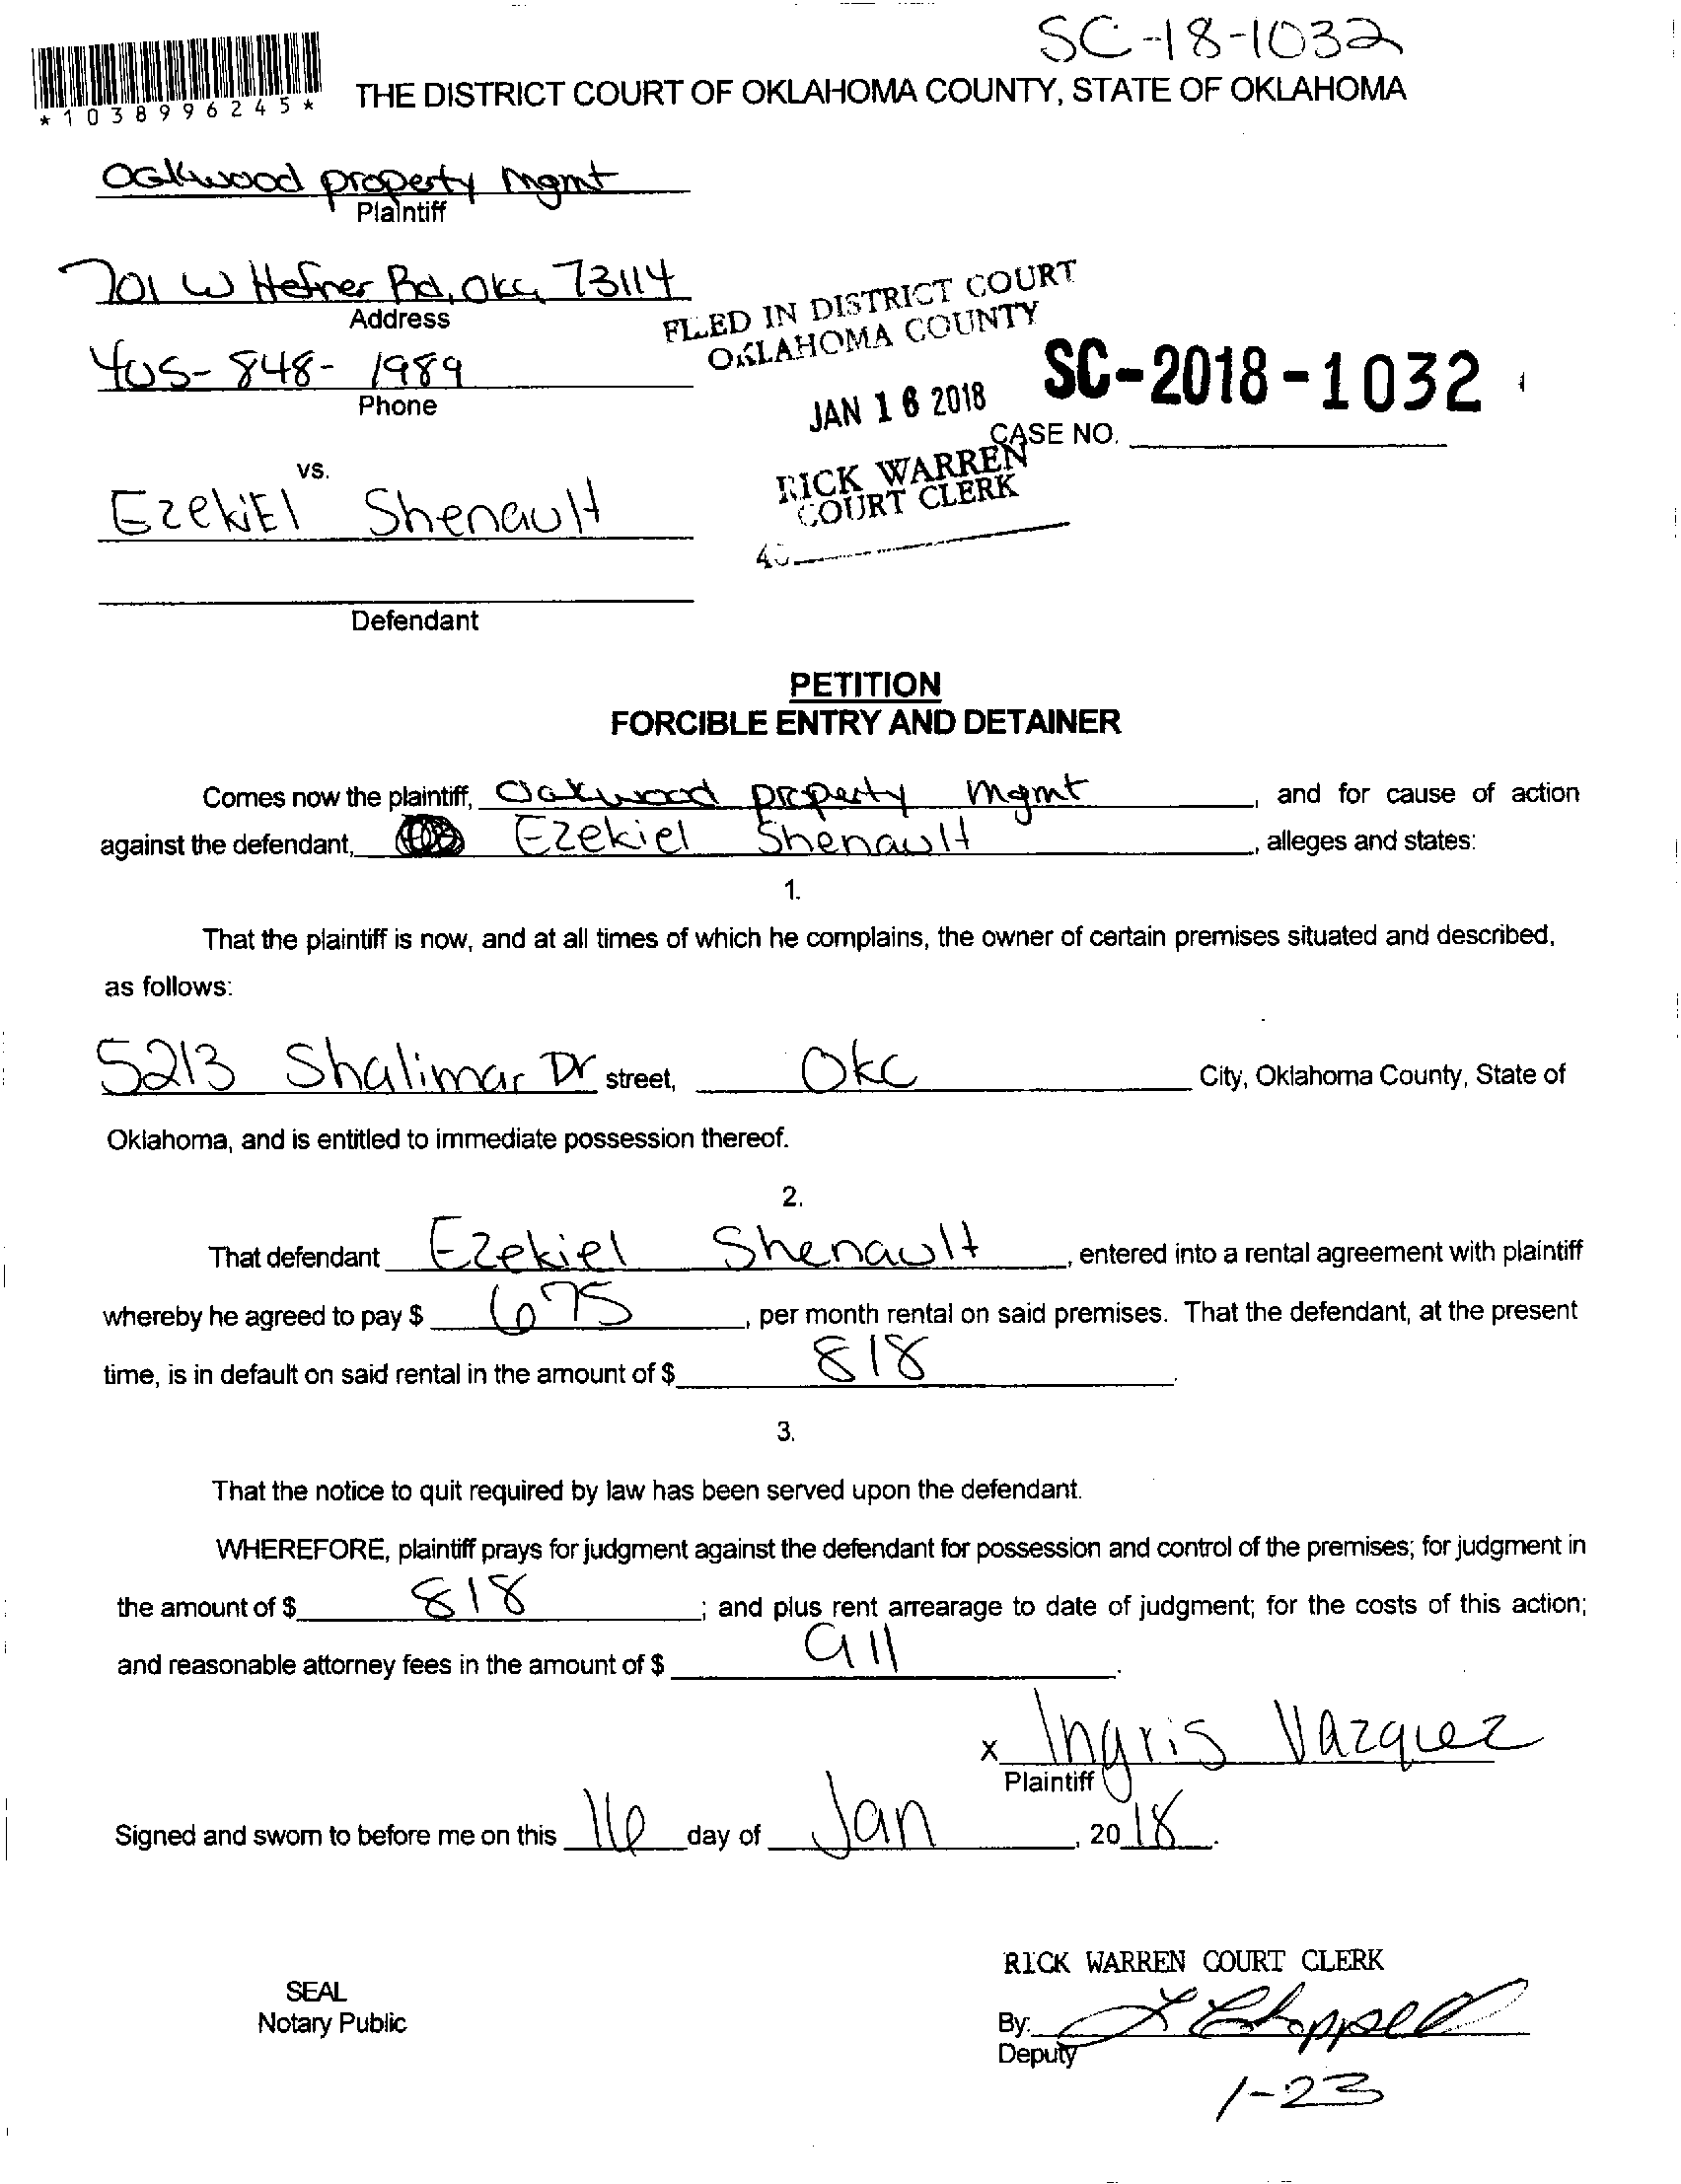 SC-18-1032
*1038996245*
THE DISTRICT COURT OF OKLAHOMA COUNTY, STATE OF OKLAHOMA
Oakwood property Mgmt
Plaintiff
701 W Hefner Rd, OKC, 73114
Address
405-848-1989
Phone
FILED IN DISTRICT COURT
OKLAHOMA COUNTY
JAN 16 2018
SC-2018-1032
CASE NO.
RICK WARREN
COURT CLERK
vs.
EzekiEl Shenault
Defendant
PETITION
FORCIBLE ENTRY AND DETAINER
Comes now the plaintiff, Oakwood property mgmt, and for cause of action
against the defendant, Ezekiel Shenault, alleges and states:
1.
That the plaintiff is now, and at all times of which he complains, the owner of certain premises situated and described,
as follows:
5213 Shalimar Dr street, OKC City, Oklahoma County, State of
Oklahoma, and is entitled to immediate possession thereof.
2.
That defendant Ezekiel Shenault, entered into a rental agreement with plaintiff
whereby he agreed to pay $ 675, per month rental on said premises. That the defendant, at the present
time, is in default on said rental in the amount of $ 818.
3.
That the notice to quit required by law has been served upon the defendant.
WHEREFORE, plaintiff prays for judgment against the defendant for possession and control of the premises; for judgment in
the amount of $ 818; and plus rent arrearage to date of judgment; for the costs of this action;
and reasonable attorney fees in the amount of $ all.
x Ingris Vazquez
Plaintiff
Signed and sworn to before me on this 16 day of Jan, 2018.
RICK WARREN COURT CLERK
SEAL
Notary Public
By: Chappell
Deputy
1-23